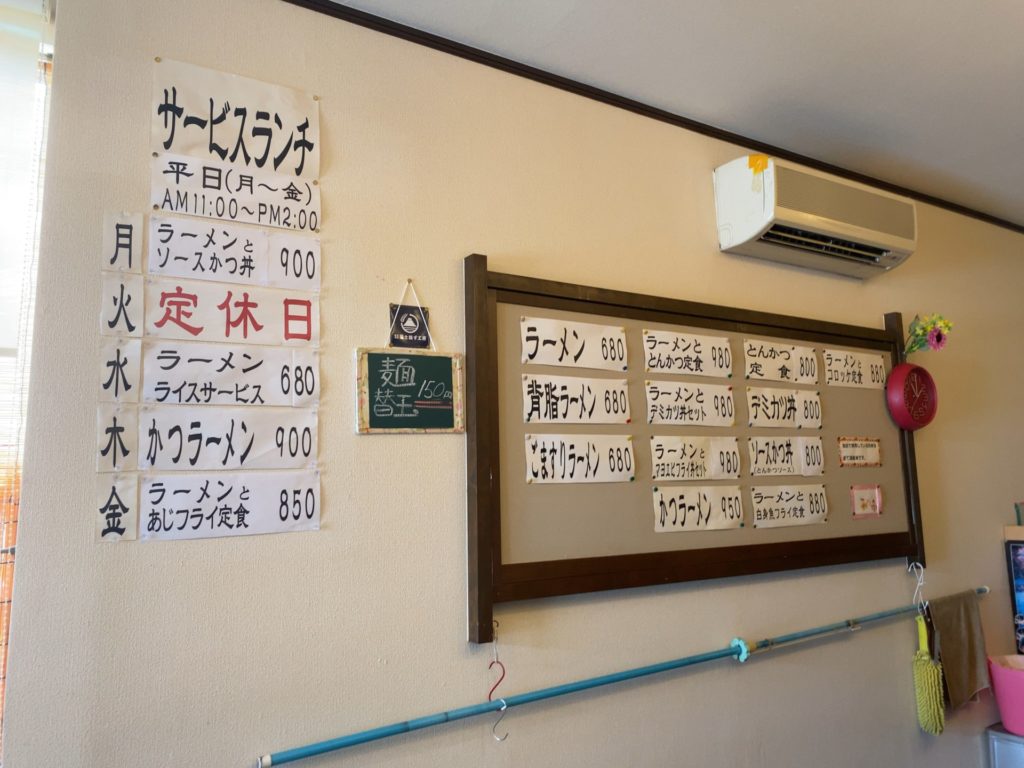 サービスランチ
平日(月〜金)
AM11:00〜PM2:00
月
ラーメンと
ソースかつ丼 900
火
定休日
水
ラーメン
ライスサービス 680
木
かつラーメン 900
金
ラーメンと
あじフライ定食 850
麺
替玉 150円
ラーメン 680
背脂ラーメン 680
ごますりラーメン 680
ラーメンと
とんかつ定食 980
ラーメンと
デミカツ丼セット 980
ラーメンと
マヨエビフライ丼セット 980
かつラーメン 950
とんかつ
定食 800
デミカツ丼 800
ソースかつ丼 800
(とんかつソース)
ラーメンと
白身魚フライ定食 880
ラーメンと
コロッケ定食 880